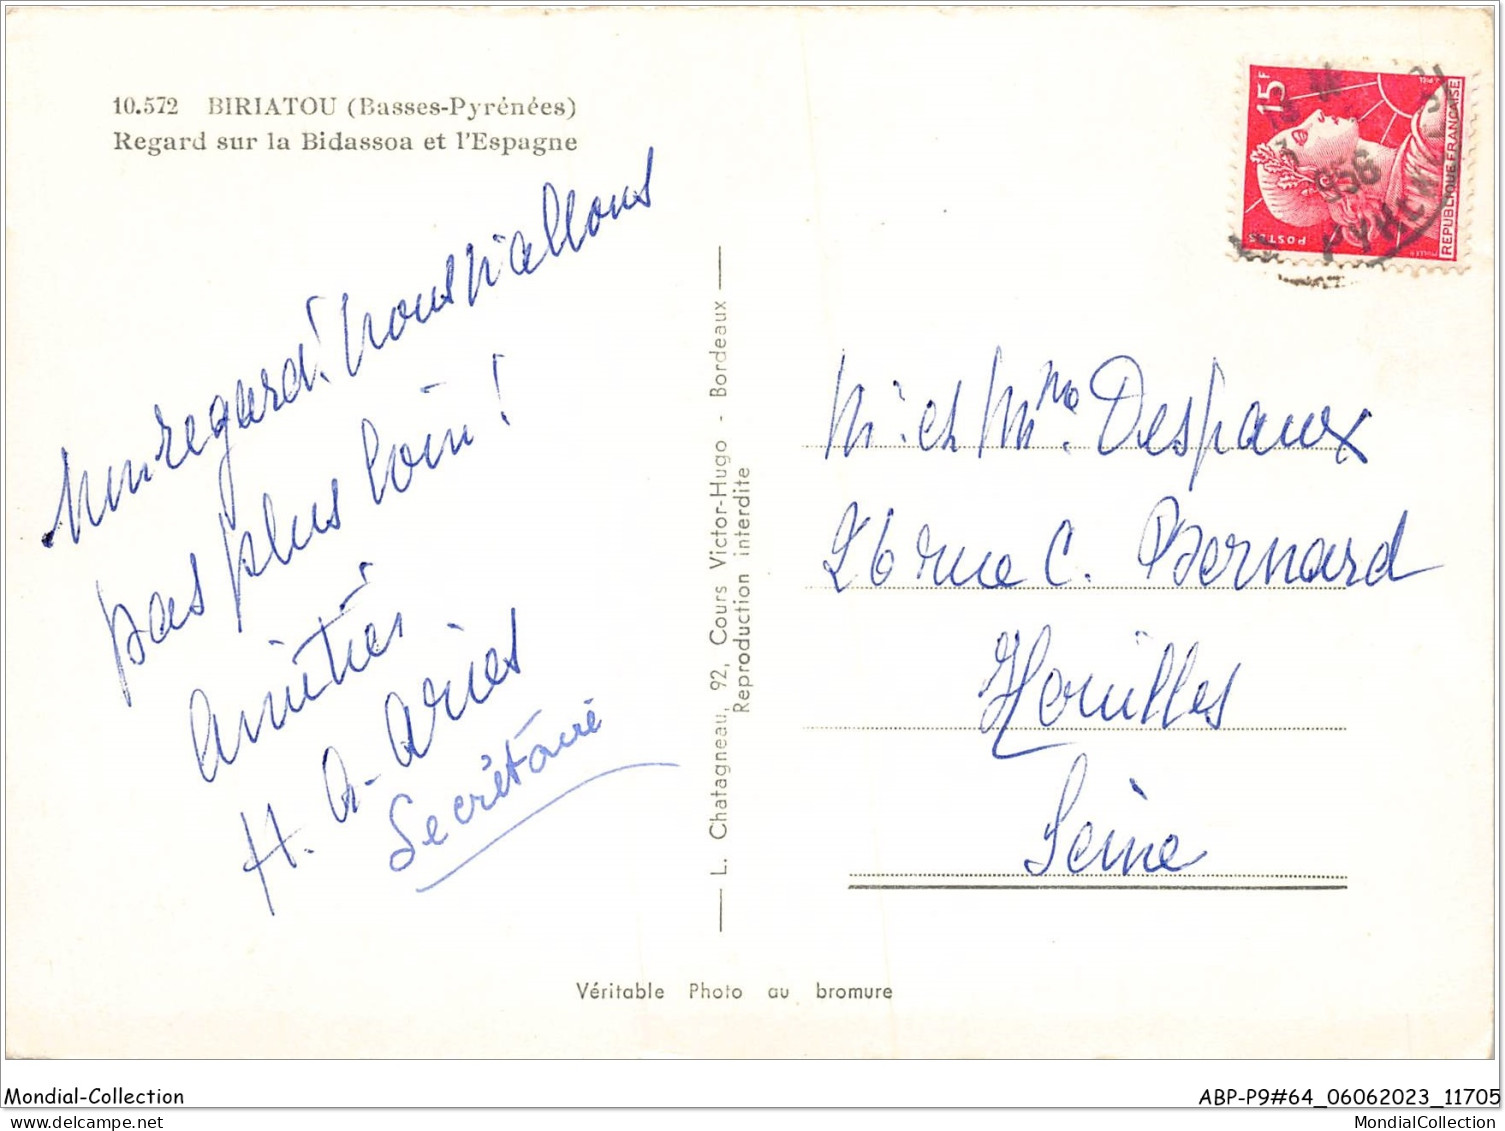 10.572 BIRIATOU (Basses-Pyrénées)
Regard sur la Bidassoa et l'Espagne
un regard! nous n'allons
pas plus loin!
Amitiés
H. A. Aries
Secrétaire
L. Chatagneau, 92, Cours Victor-Hugo - Bordeaux
Reproduction interdite
15F
POSTES
REPUBLIQUE FRANÇAISE
MULLER
956
M. et Mme Despaux
26 rue C. Bernard
Houilles
Seine
Véritable Photo au bromure
Mondial-Collection
ABP-P9#64_06062023_11705
Mondial-Collection.com
MondialCollection